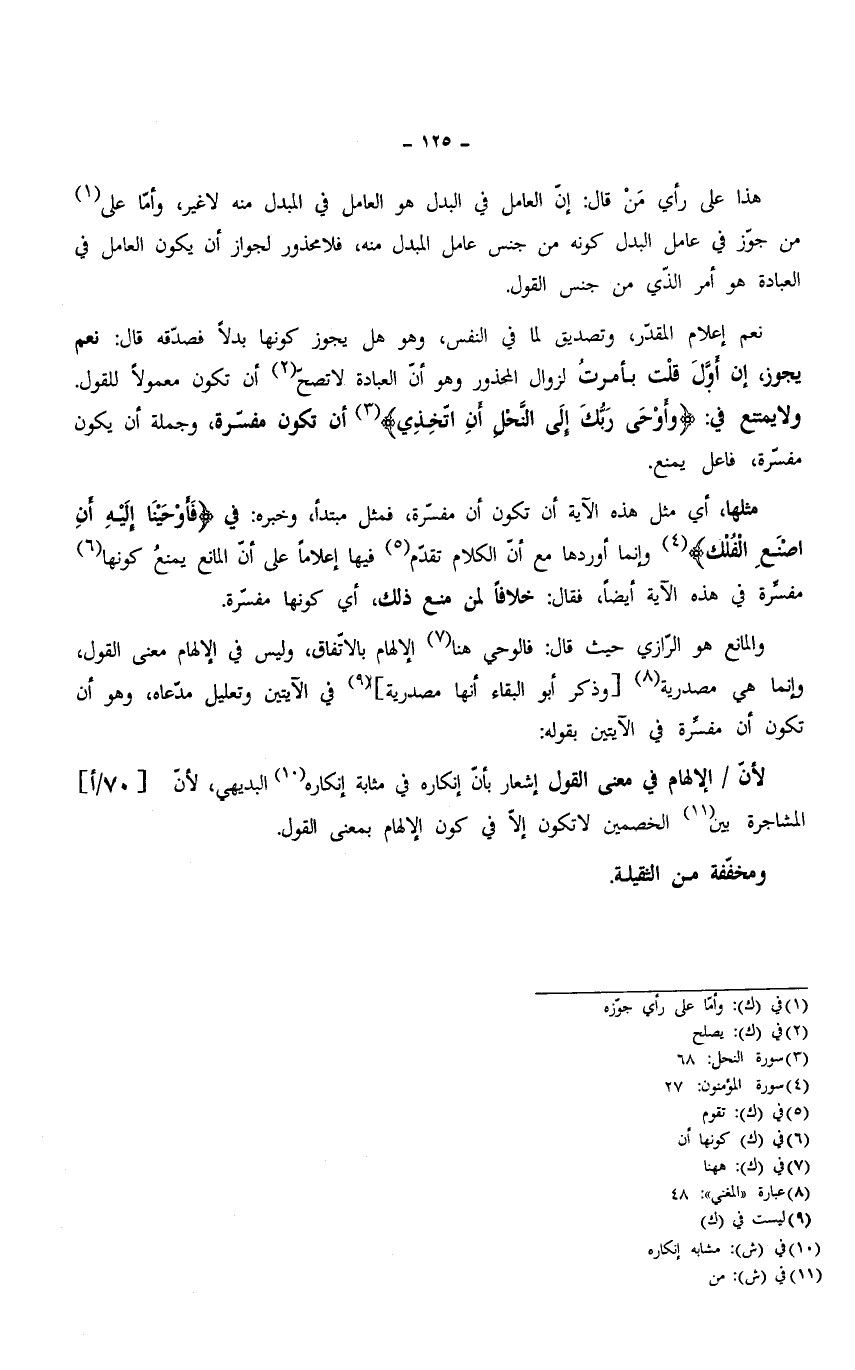 - ١٢٥ -
هذا على رأي مَنْ قال: إنّ العامل في البدل هو العامل في المبدل منه لاغير، وأمّا على(١)
من جوّز في عامل البدل كونه من جنس عامل المبدل منه، فلامحذور لجواز أن يكون العامل في
العبادة هو أمر الذّي من جنس القول.
نعم إعلام المقدّر، وتصديق لما في النفس، وهو هل يجوز كونها بدلاً فصدّقه قال: نعم
يجوز، إن أوَّلَ قلْت بـأمرتُ لزوال المحذور وهو أنّ العبادة لاتصحّ(٢) أن تكون معمولاً للقول.
ولايمتنع في: ﴿وأَوْحَى رَبُّكَ إِلَى النَّحْلِ أَنِ اتَخِذِي﴾(٣) أن تكون مفسّرة، وجملة أن يكون
مفسّرة، فاعل يمنع.
مثلها، أي مثل هذه الآية أن تكون أن مفسّرة، فمثل مبتدأ، وخبره: في ﴿فَأَوْحَيْنَا إِلَيْهِ أَنِ
اصْنَعِ الْفُلْك﴾(٤) وإنما أوردها مع أنّ الكلام تقدّم(٥) فيها إعلاماً على أنّ المانع يمنعُ كونها(٦)
مفسِّرة في هذه الآية أيضاً، فقال: خلافاً لمن منع ذلك، أي كونها مفسّرة.
والمانع هو الرّازي حيث قال: فالوحي هنا(٧) الإلهام بالاتّفاق، وليس في الإلهام معنى القول،
وإنما هي مصدرية(٨) [وذكر أبو البقاء أنها مصدرية](٩) في الآيتين وتعليل مدّعاه، وهو أن
تكون أن مفسِّرة في الآيتين بقوله:
لأنّ / الإلهام في معنى القول إشعار بأنّ إنكاره في مثابة إنكاره(١٠) البديهي، لأنّ [٧٠/أ]
المشاجرة بين(١١) الخصمين لاتكون إلاّ في كون الإلهام بمعنى القول.
ومخفّفة من الثقيلة.
(١)في (ك): وأمّا على رأي جوّزه
(٢)في (ك): يصلح
(٣)سورة النحل: ٦٨
(٤)سورة المؤمنون: ٢٧
(٥)في (ك): تقوم
(٦)في (ك) كونها أن
(٧)في (ك): ههنا
(٨)عبارة «المغني»: ٤٨
(٩)ليست في (ك)
(١٠)في (ش): مشابه إنكاره
(١١)في (ش): من